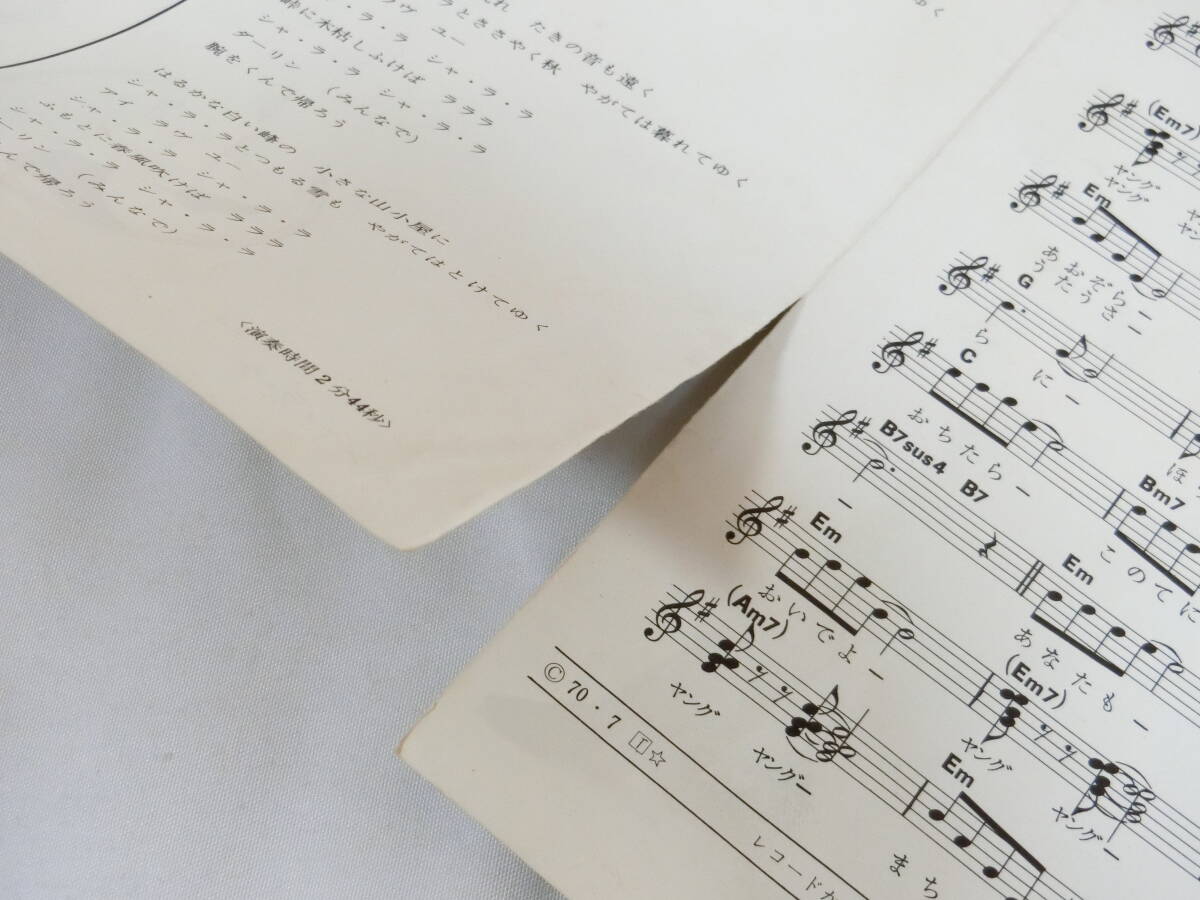 ゆく
れ　たきの音も遠く
ラヴ　ユー
ラとささやく秋　やがては暮れてゆく
シャ・ラ・ラ　シャ・ラ・ラ
峠に木枯しふけば　ラララ
シャ・ラ・ラ　シャ・ラ・ラ
ダーリン　(みんなで)
腕をくんで帰ろう
はるかな白い峰の　小さな山小屋に
シャ・ラ・ラとつもる雪も　やがてはとけてゆく
アイ　ラヴ　ユー
シャ・ラ・ラ　シャ・ラ・ラ
ふもとに春風吹けば　ラララ
シャ・ラ・ラ　シャ・ラ・ラ
ーリン　(みんなで)
んで帰ろう
〈演奏時間2分44秒〉
(Em7)
ヤング
ヤング
Em
あおぞらー
うたうさー
G
らにー
C
おちたらー
ほ
B7sus4 B7 Bm7
ー
このてに
Em Em
おいでよー
あなたもー
(Am7) (Em7)
ヤング ヤングー ヤング ヤングー
Em
まち
© 70・7 T ☆
レコードか